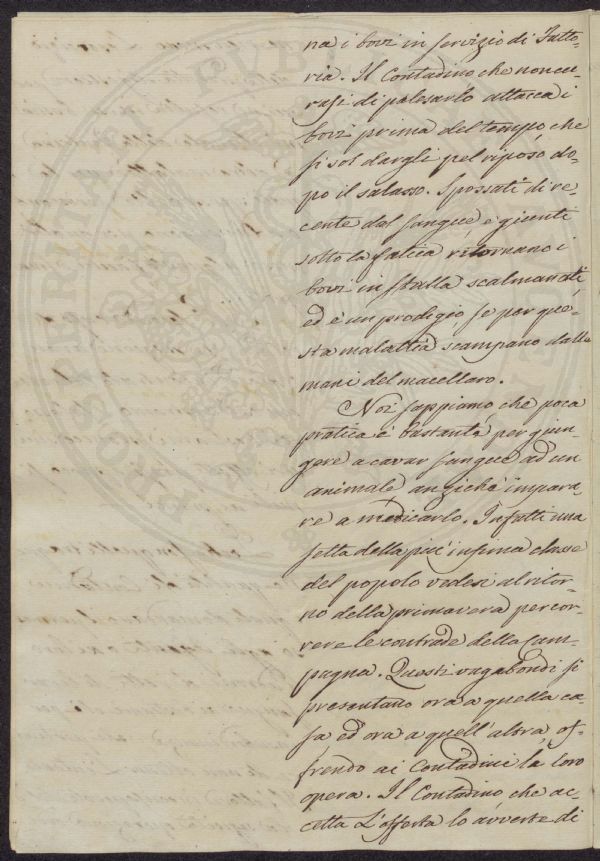 na i bovi in servizio di Fatto-
ria. Il Contadino che non cu-
rasi di palesarlo attacca i
bovi prima del tempo che
si sol dargli pel riposo do-
po il salasso. Spossati di re-
cente dal sangue, e giunti
sotto la fatica ritornano i
bovi in stalla scalmanati
ed è un prodigio, se per que-
sta malattia scampano dalle
mani del macellaro.
Noi sappiamo, che poca
pratica è bastante per giun-
gere a cavar sangue ad un
animale anziche impara-
re a medicarlo. Infatti una
setta della più infima classe
del popolo vedesi al ritor-
no della primavera percor-
rere le contrade della Cam-
pagna. Questi vagabondi si
presentano ora a quella ca-
sa ed ora a quell'altra, of-
frendo ai Contadini la loro
opera. Il Contadino che ac-
cetta l'offerta lo avverte di
PROSPERITATI PUB